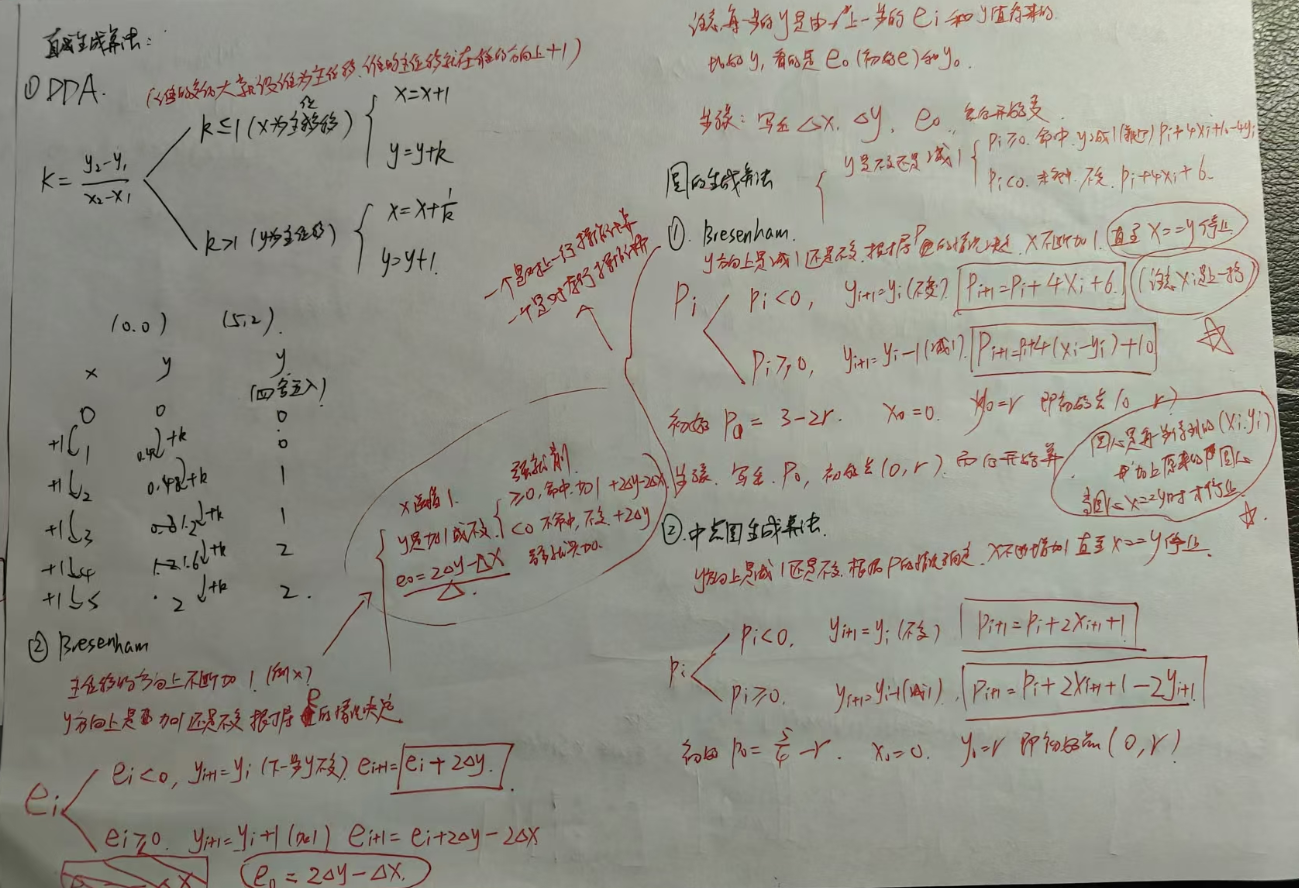 直线生成算法：
① DDA.
(谁的变化大就设谁为主位移,谁的主位移就在谁的方向上+1)
K = (y₂-y₁)/(x₂-x₁)
k≤1 (x为主位移)
x=x+1
y=y+k
k>1 (y为主位移)
x=x+1/k
y=y+1.
(0.0) (5,2).
x y y
(四舍五入)
0 0 0
+1 1 0.4 +k 0
+1 2 0.8 +k 1
+1 3 1.2 +k 1
+1 4 1.6 +k 2
+1 5 2 +k 2.
② Bresenham
主位移的方向上不断加1. (例x)
y方向上是加1还是不变根据 的情况决定
ei
ei<0, yi+1=yi (下一步y不变). ei+1=ei+2Δy.
ei≥0. yi+1=yi+1 (加1) ei+1=ei+2Δy-2Δx
e₀=2Δy-Δx.
x 1.
y是加1或不变.
≥0,命中.加1 +2Δy-2Δx
<0 不命中,不变.+2Δy
e₀=2Δy-Δx
注意每一步的y是由上一步的ei和y值得来的
初始y,看的是e₀(初始e)和y₀.
步骤: 写出Δx. Δy, e₀
圆的生成算法
y是不变还是减1
Pi≥0. 命中. y减1 Pi+4Xi+10-4yi
Pi<0. 未命中. 不变. Pi+4Xi+6
①. Bresenham.
y方向上是减1还是不变.根据P的情况决定. X不断加1. 直至X==y停止
Pi
Pi<0, yi+1=yi (不变). Pi+1=Pi+4Xi+6. (注意Xi是上一步)
Pi≥0, yi+1=yi-1 (减1). Pi+1=Pi+4(Xi-yi)+10
初始 P₀=3-2r. x₀=0. y₀=r 即初始点(0 r)
步骤. 写出P₀, 初始点(0,r). 而后开始算
圆心是每步得到的(Xi.yi)
加上原来的圆心
当 X==y时才停止
②.中点圆生成算法.
y方向上是减1还是不变.根据P的情况确定. X不断增加1直至X==y停止.
Pi
Pi<0, yi+1=yi (不变) Pi+1=Pi+2Xi+1+1
Pi≥0. yi+1=yi-1 (减1). Pi+1=Pi+2Xi+1+1-2yi+1
初始 P₀=5/4-r. x₀=0. y₀=r 即初始点(0,r)